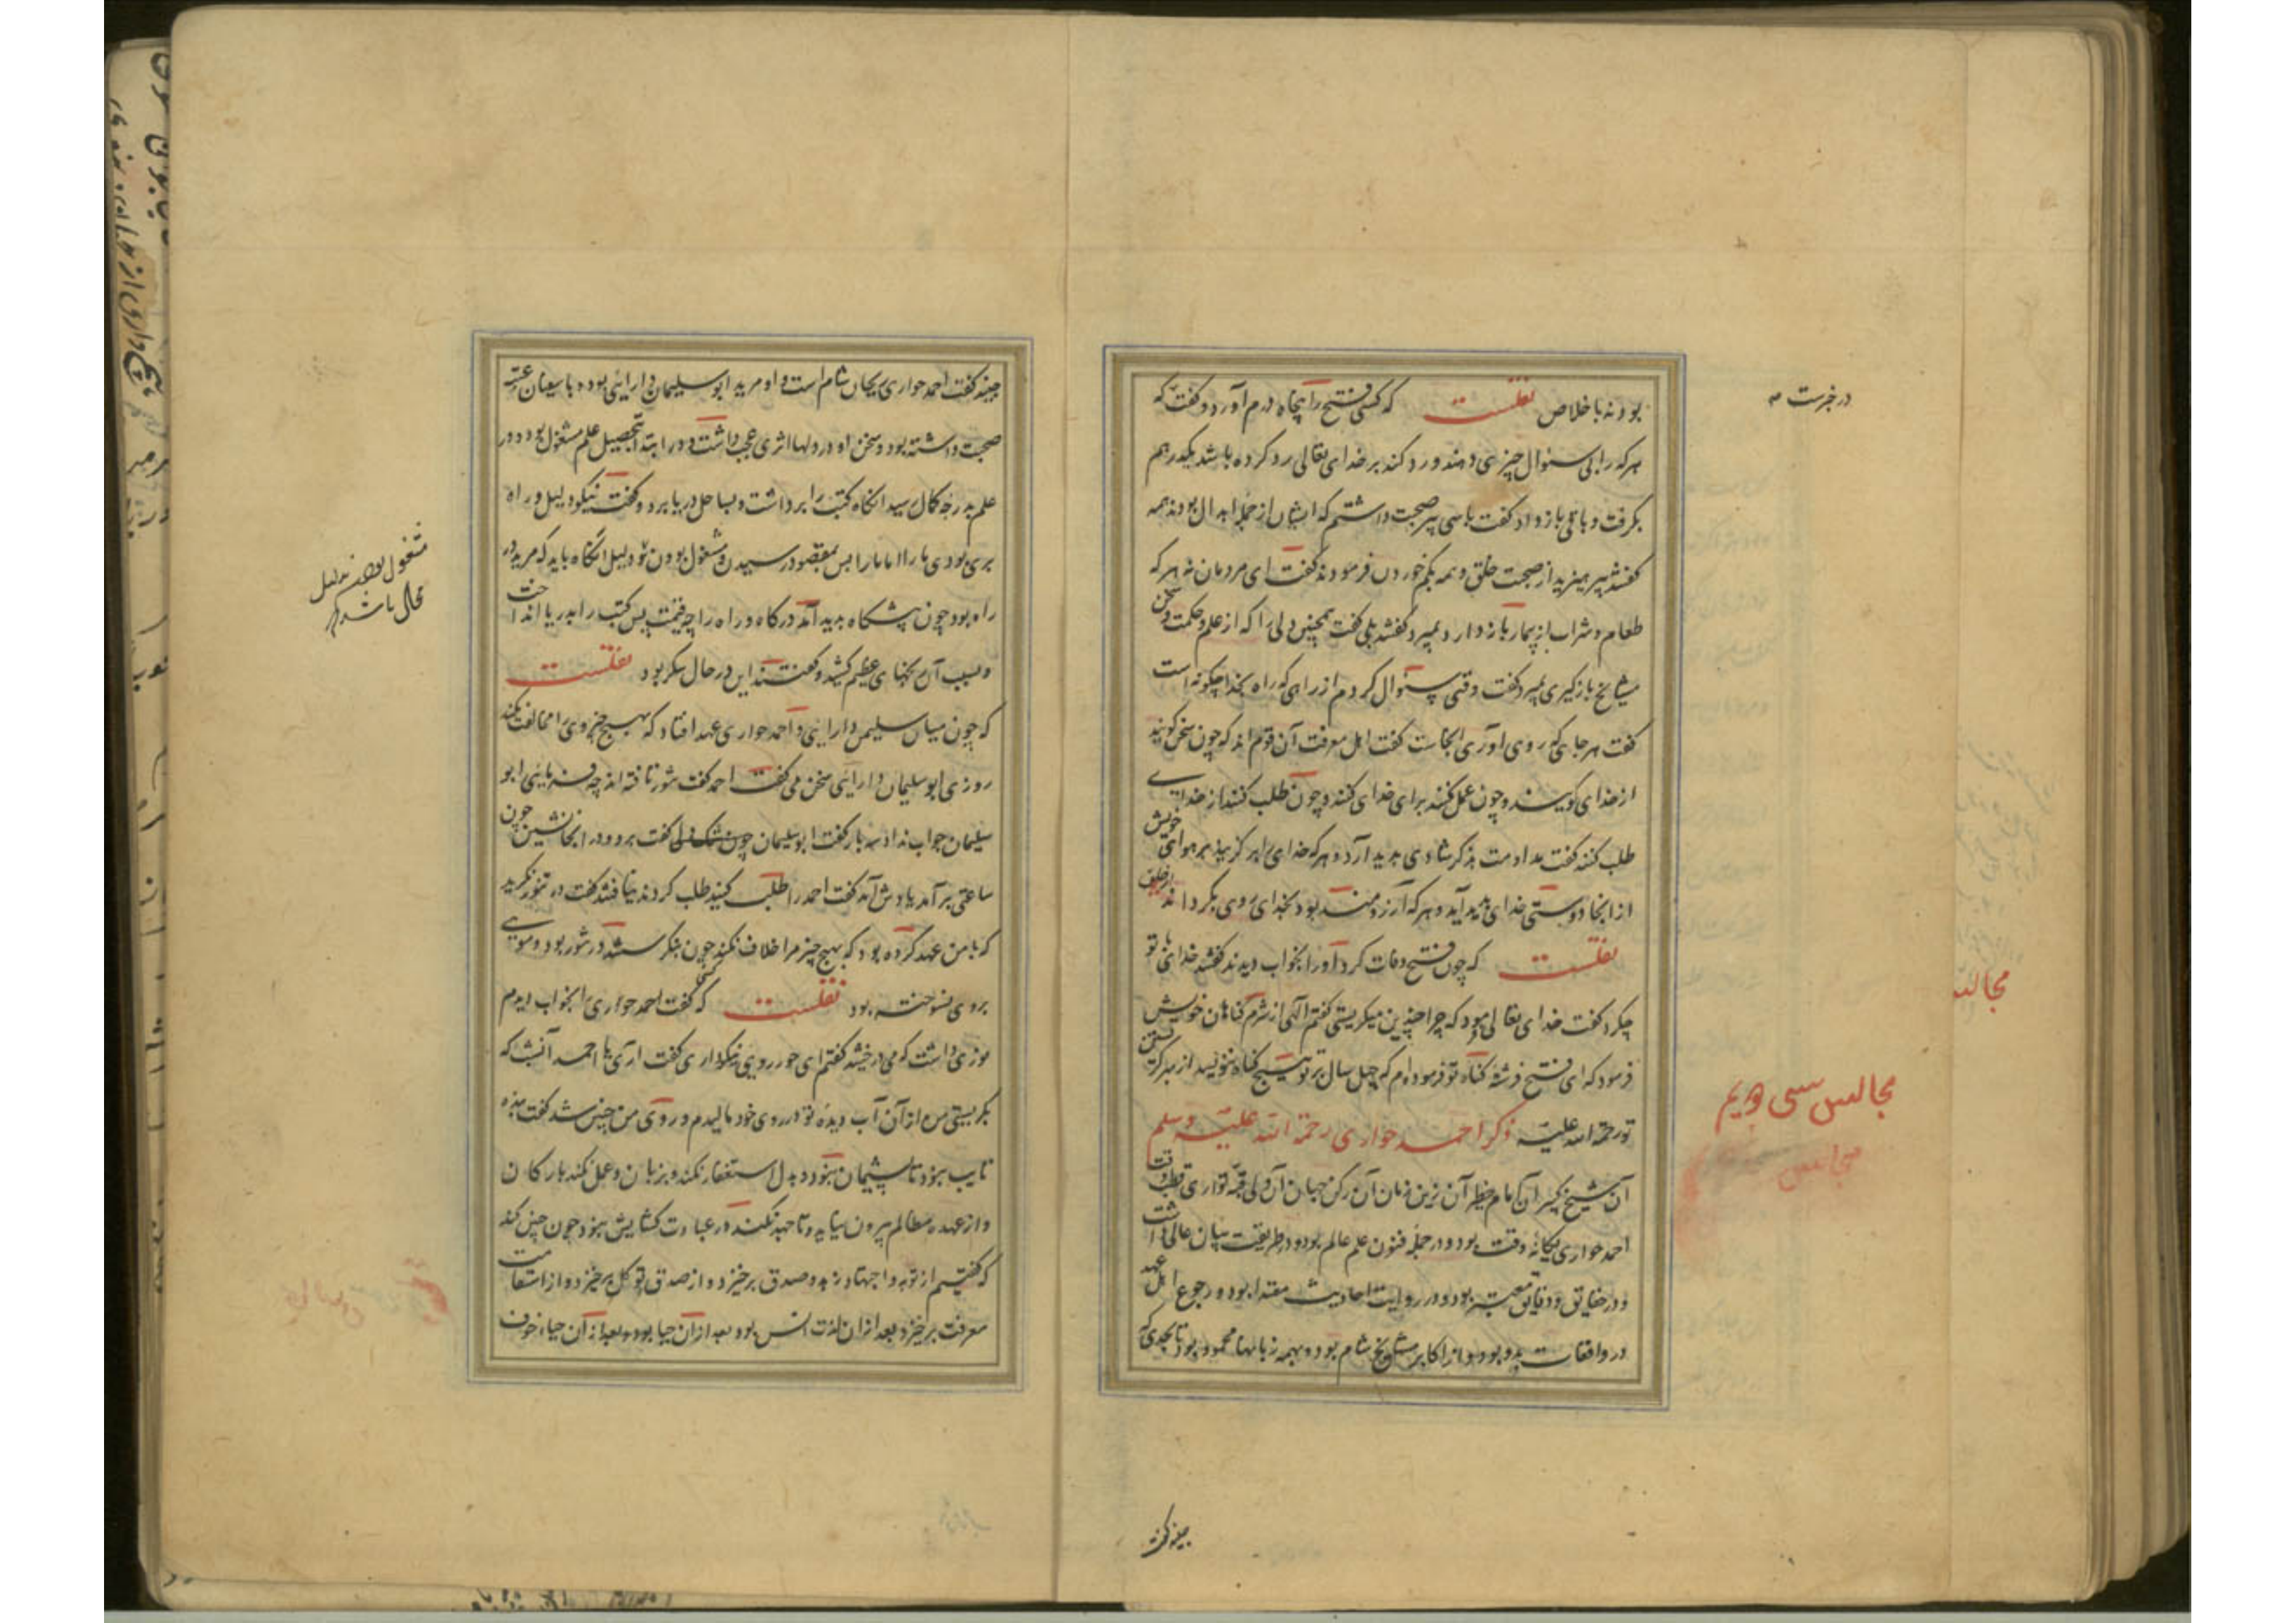 بود نه باخلاص نقلست که کسی فتح را پنجاه درم آورد و گفت که
هر که را بی سئوال چیزی دهند و رد کند بر خدای تعالی رد کرده باشد یکدرهم
بگرفت و باقی باز داد گفت با سی پیر صحبت داشتم که ایشان از جمله ابدال بودند همه
گفتند پرهیزید از صحبت خلق و همه بکم خوردن فرمودند گفت ای مردمان نه هر که
طعام و شراب از بیمار باز دارد بمیرد گفتند بلی گفت همچنین دلی را که از علم و حکمت و سخن
مشایخ بازگیری بمیرد گفت وقتی سئوال کردم از راهی که راه بخدا چگونه است
گفت هر جای که روی آوری آنجاست گفت اهل معرفت آن قوم اند که چون سخن گویند
از خدای گویند و چون عمل کنند برای خدای کنند و چون طلب کنند از خدای
طلب کنند گفت مداومت ذکر شادی پدید آرد و هر که خدای را بر گزیند بر هوای خویش
از آنجا دوستی خدای پدید آید و هر که آرزومند بود بخدای روی بگرداند از خلق
نقلست که چون فتح وفات کرد او را بخواب دیدند گفتند خدای با تو
چکرد گفت خدای تعالی فرمود که چرا چندین میگریستی گفتم الهی از شرم گناهان خویش
فرمود که ای فتح فرشته گناه تو فرموده ام که چهل سال بر تو هیچ گناه ننویسد از بهر گریستن
تو رحمة الله علیه ذکر احمد حواری رحمة الله علیه وسلم
آن شیخ کبیر آن امام خطیر آن زین زمان آن رکن جهان آن ولی قبه تواری قطب وقت
احمد حواری یگانه وقت بود و در جمله فنون علم عالم بود و در طریقت بیان عالی داشت
و در حقایق و دقایق معتبر بود و در روایت احادیث مقتدا بود و رجوع اهل عهد
در واقعات بدو بود و از اکابر مشایخ شام بود و بهمه زبانها محمود بود تا بحدی که
مجالس سی ویم
مجالس
مجالس
جنید گفت
جنید گفت احمد حواری ریحان شام است و او مرید ابو سلیمان دارایی بود و با سفیان عیینه
صحبت داشته بود و سخن او در دلها اثری عجب داشت و در ابتدا بتحصیل علم مشغول بود و در
علم بدرجه کمال رسید آنگاه کتب را برداشت و بساحل دریا برد و گفت نیکو دلیل و راه
بری بودی ما را اما ما را پس بمقصود رسیدن مشغول بودن تو دلیل آنگاه باید که مرید در
راه بود چون پیشگاه پدید آمد درگاه و راه را چه قیمت پس کتب را بدریا انداخت
و بسبب آن رنجهای عظیم کشید و گفتند این در حال سکر بود نقلست
که چون میان سلیمن دارایی و احمد حواری عهد افتاد که بهیچ چیز وی را مخالفت نکند
روزی ابو سلیمان دارایی سخن می گفت احمد گفت تنور تافته اند چه فرمایی ابو
سلیمان جواب نداد سه بار گفت ابو سلیمان چون تنگ دلی گفت برو و در آنجا نشین چون
ساعتی بر آمد یادش آمد گفت احمد را طلب کنید طلب کردند نیافتند گفت در تنور نگرید
که با من عهد کرده بود که بهیچ چیز مرا خلاف نکند چون بنگرستند در تنور بود و مویی
بر وی نسوخته بود نقلست که گفت احمد حواری بخواب دیدم
نوری داشت که می درخشید گفتم ای حور رویی نیکو داری گفت آری یا احمد آنشب که
بگریستی من از آن آب دیده تو در روی خود مالیدم و روی من چنین شد گفت بنده
تایب نبود تا پشیمان نبود بدل و استغفار نکند و بزبان و عمل نکند بارکان
و از عهده مظالم بیرون نیاید و تا جهد نکند در عبادت گشایش نبود چون چنین کند
که گفتیم از توبه و اجتهاد زهد و صدق برخیزد و از صدق توکل برخیزد و از استقامت
معرفت برخیزد بعد از آن لذت انس بود بعد از آن حیا بود و بعد از آن حیا خوف
مشغول بودن بدلیل
محال باشد